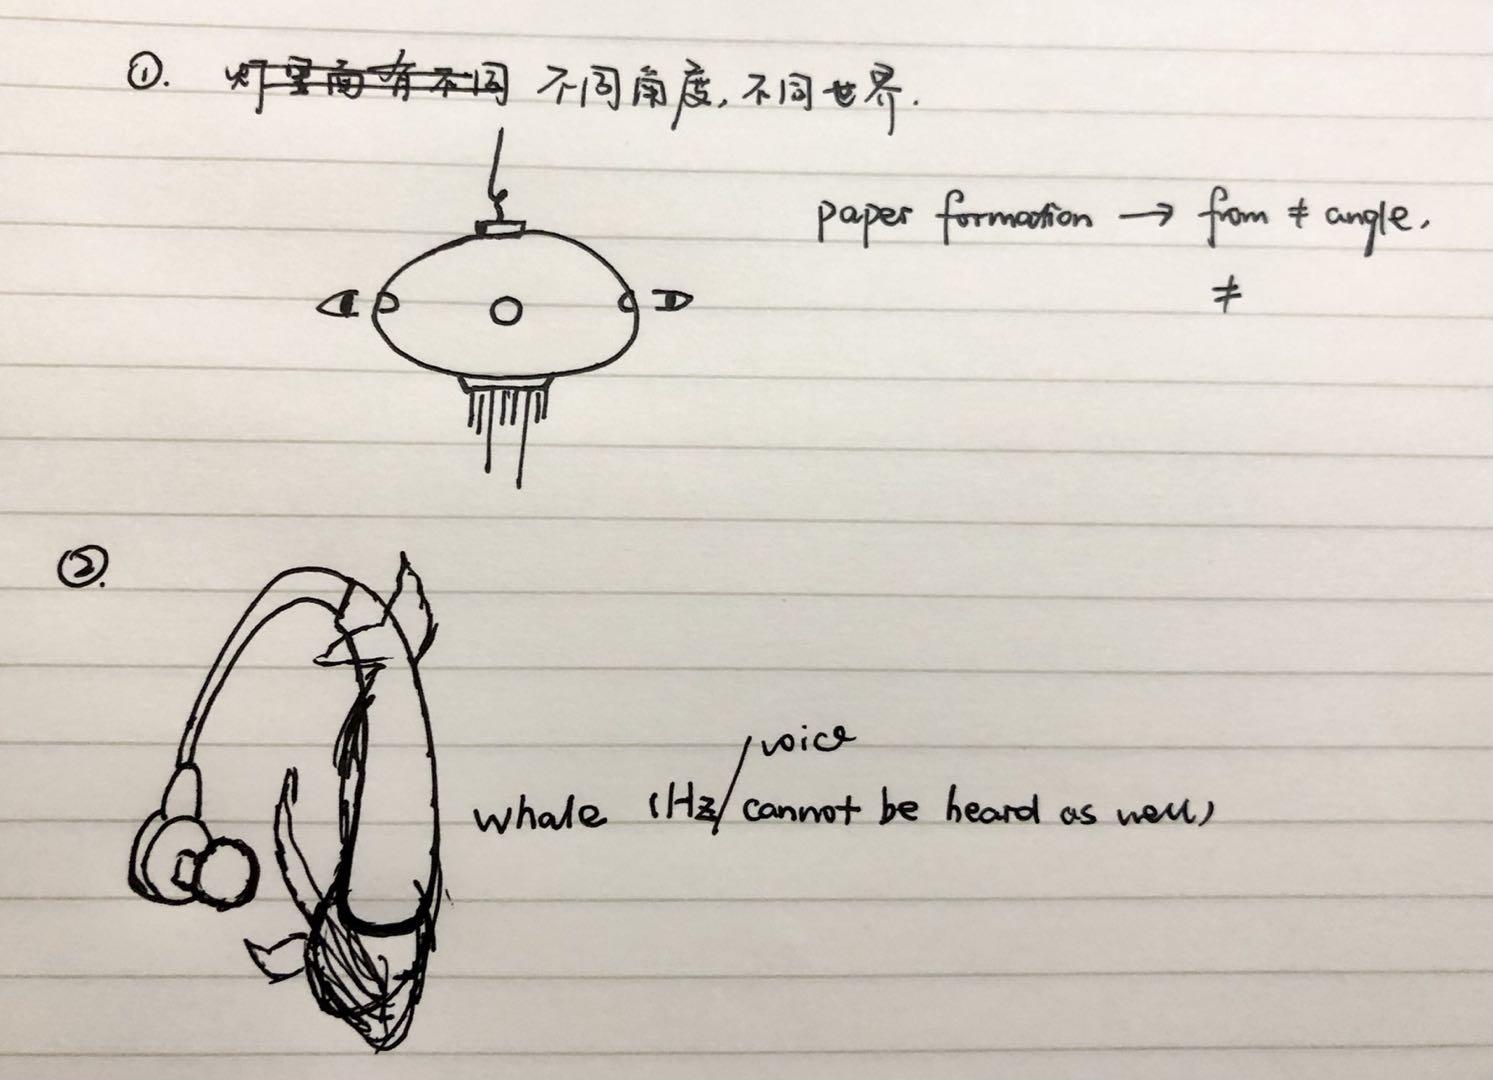 ①. 灯里面有不同 不同角度,不同世界.
paper formation → from ≠ angle,
≠
②.
voice
whale (Hz/cannot be heard as well)